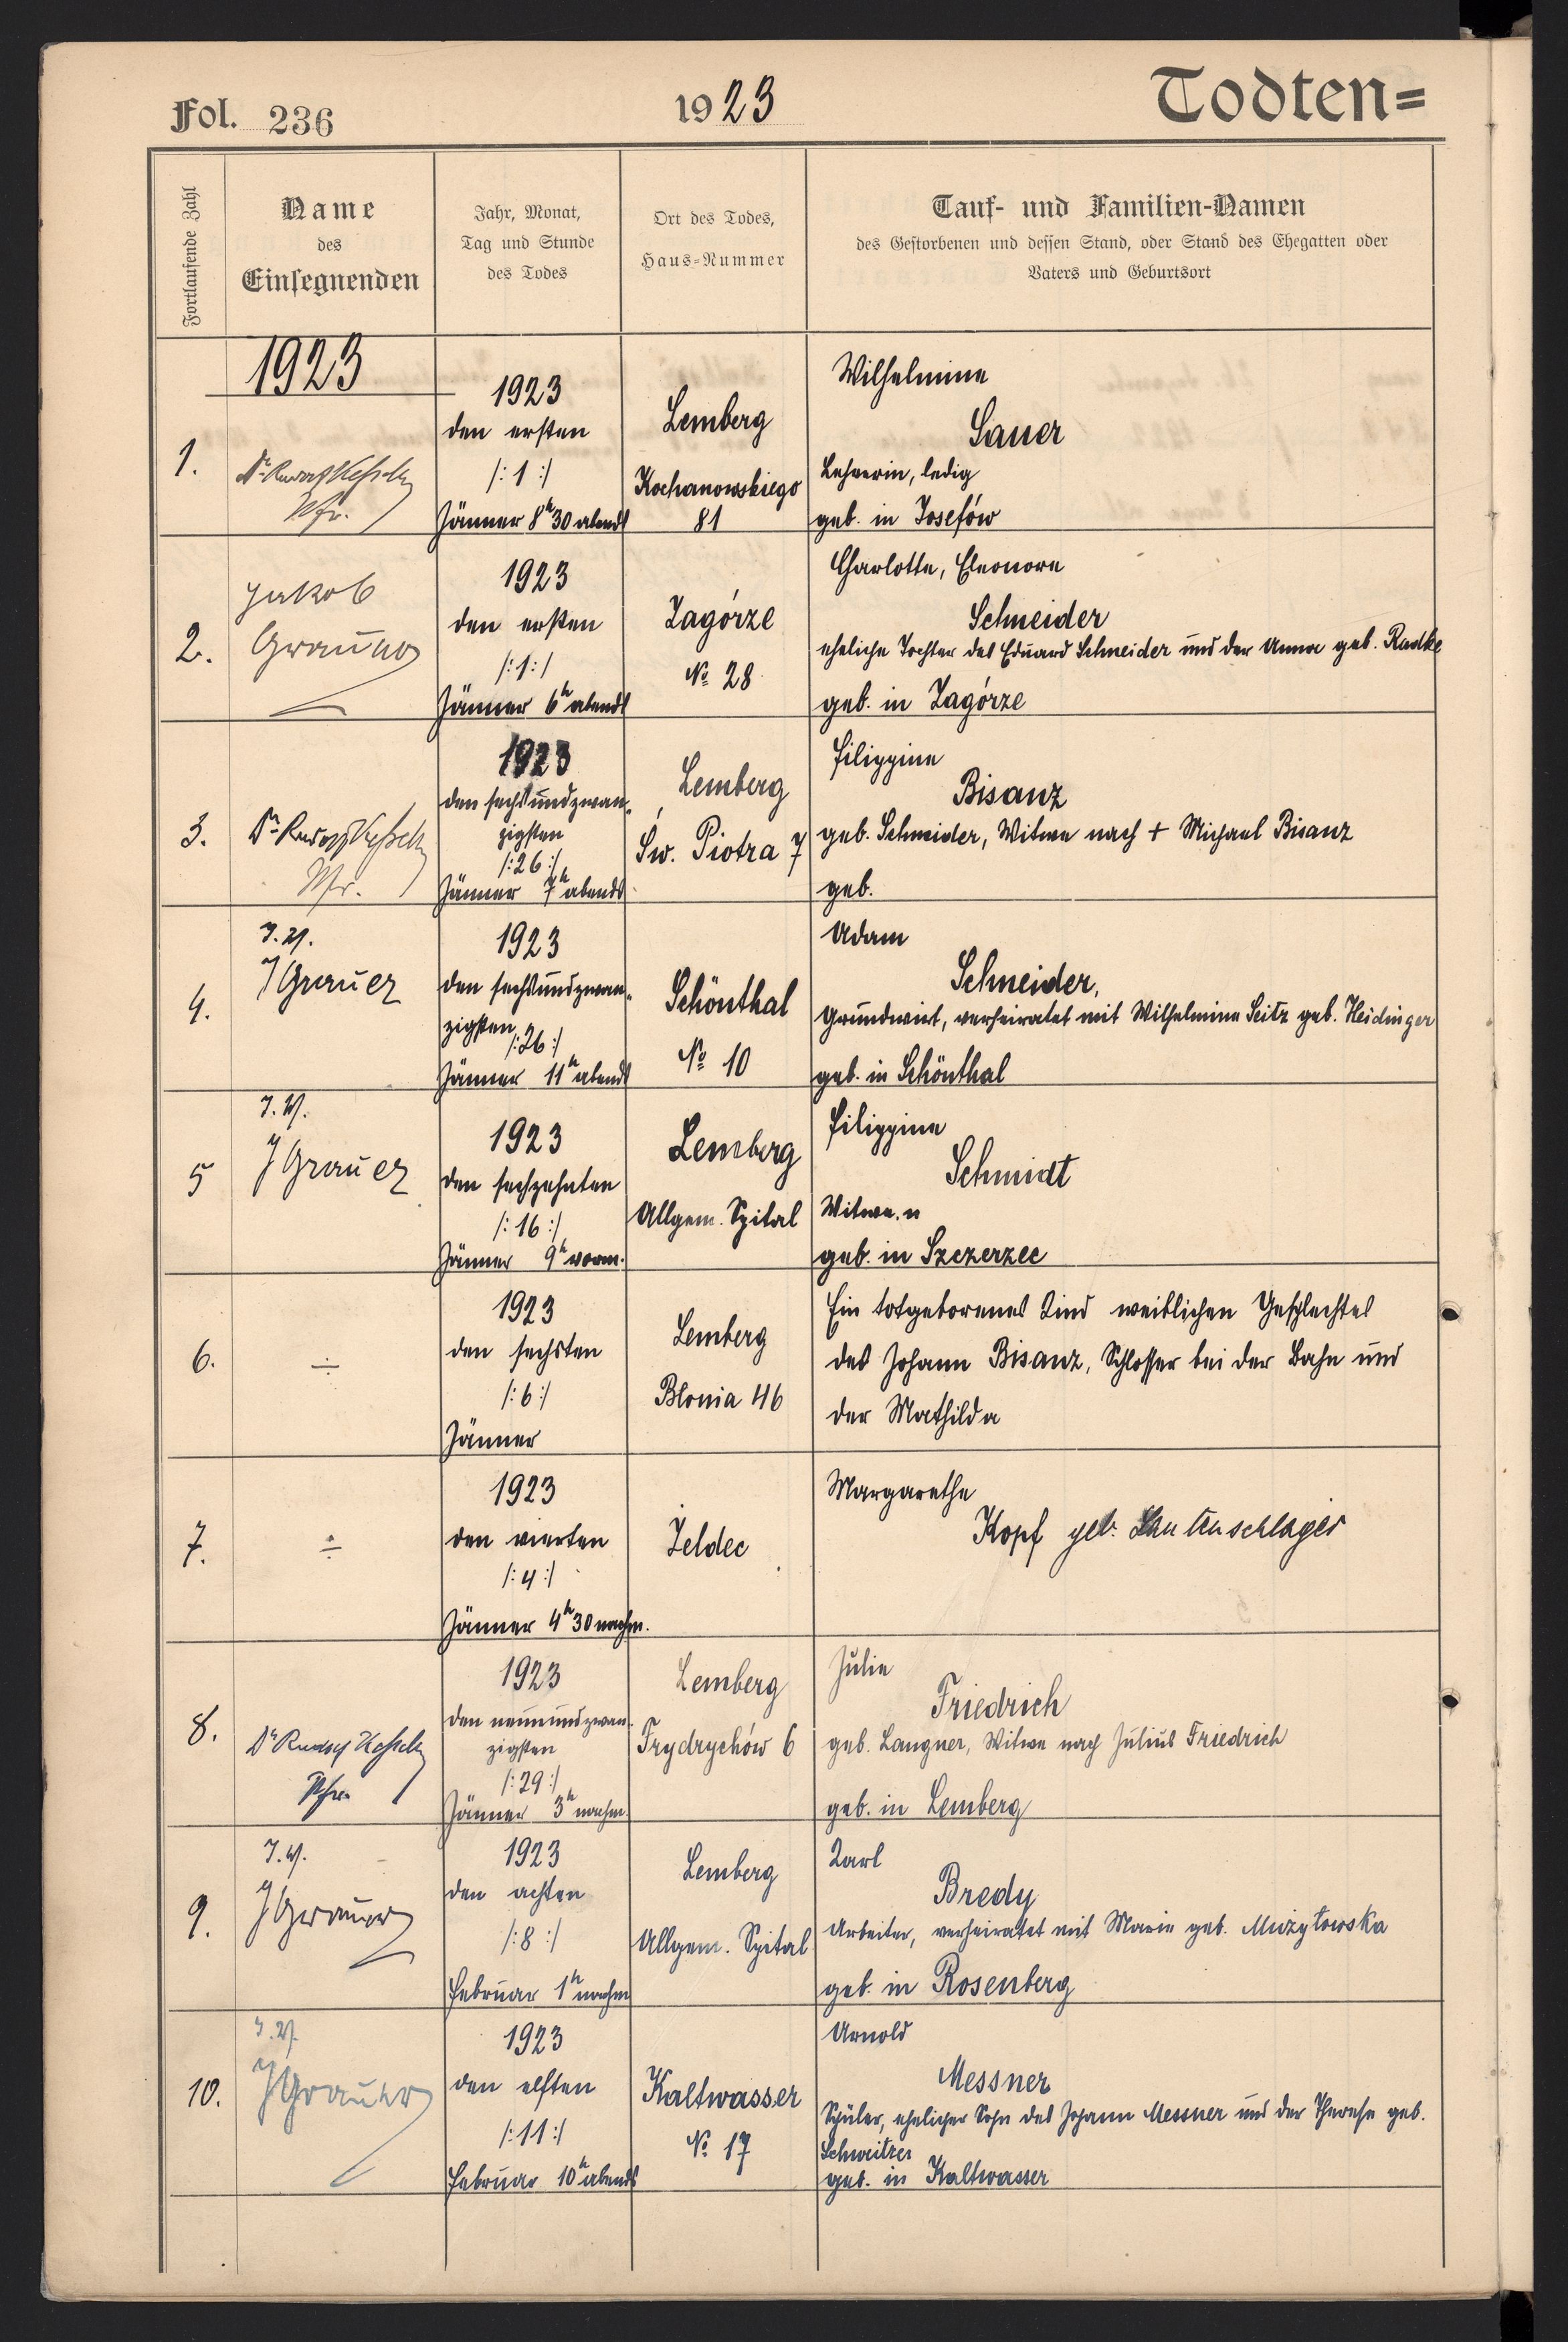 Fol. 236
1923
Todten=
Fortlaufende Zahl
Name
des
Einsegnenden
Jahr, Monat,
Tag und Stunde
des Todes
Ort des Todes,
Haus-Nummer
Tauf- und Familien-Namen
des Gestorbenen und dessen Stand, oder Stand des Ehegatten oder
Vaters und Geburtsort
1923
1.
Dr Rudolf Kesselring
Pfr.
1923
den ersten
/: 1 :/
Jänner 8h 30 abends
Lemberg
Kochanowskiego
81
Wilhelmine
Sauer
Lehrerin, ledig
geb. in Josefów
2.
Jakob
Grauer
1923
den ersten
/: 1 :/
Jänner 6h abends
Zagórze
No 28
Charlotte, Eleonore
Schneider
eheliche Tochter des Eduard Schneider und der Anna geb. Radke
geb. in Zagórze
3.
Dr Rudolf Kesselring
Pfr.
1923
den sechsundzwan-
zigsten
/: 26 :/
Jänner 7h abends
Lemberg
Św. Piotra 7
Filippine
Bisanz
geb. Schneider, Witwe nach + Michael Bisanz
geb.
4.
I. V.
J Grauer
1923
den sechsundzwan-
zigsten
/: 26 :/
Jänner 11h abends
Schönthal
No 10
Adam
Schneider,
Grundwirt, verheiratet mit Wilhelmine Seitz geb. Heidinger
geb. in Schönthal
5
I. V.
J Grauer
1923
den sechzehnten
/: 16 :/
Jänner 9h vorm.
Lemberg
Allgem. Spital
Filippine
Schmidt
Witwe. n
geb. in Szczerzec
6.
÷
1923
den sechsten
/: 6 :/
Jänner
Lemberg
Blonia 46
Ein totgeborenes Kind weiblichen Geschlechtes
des Johann Bisanz, Schlosser bei der Bahn und
der Mathilda
7.
÷
1923
den vierten
/: 4 :/
Jänner 4h 30 nachm.
Żeldec
Margarethe
Kopf geb. Lautenschlager
8.
Dr Rudolf Kesselring
Pfr.
1923
den neunundzwan-
zigsten
/: 29 :/
Jänner 3h nachm.
Lemberg
Frydrychów 6
Julie
Friedrich
geb. Langner, Witwe nach Julius Friedrich
geb. in Lemberg
9.
I. V.
J Grauer
1923
den achten
/: 8 :/
Februar 1h nachm
Lemberg
Allgem. Spital
Karl
Bredy
Arbeiter, verheiratet mit Marie geb. Mużyłowska
geb. in Rosenberg
10.
I. V.
J Grauer
1923
den elften
/: 11 :/
Februar 10h abends
Kaltwasser
No 17
Arnold
Messner
Schüler, ehelicher Sohn des Johann Messner und der Therese geb.
Schweitzer
geb. in Kaltwasser